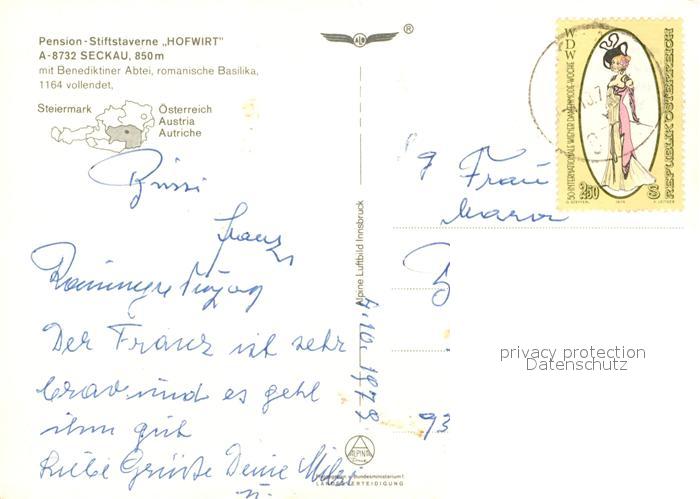 Pension-Stiftstaverne „HOFWIRT"
A-8732 SECKAU, 850m
mit Benediktiner Abtei, romanische Basilika,
1164 vollendet,
Steiermark
Österreich
Austria
Autriche
Bussi
Franz
Der Franz ist sehr
brav und es geht
ihm gut
Liebe Grüße Deine
u.
Alpine Luftbild Innsbruck
4.10.1978
®
ALPINE
LANDESVERTEIDIGUNG
Frau
93
WDW
50. INTERNATIONALE WIENER DAMENMODE-WOCHE
REPUBLIK ÖSTERREICH
2.50 S
privacy protection
Datenschutz